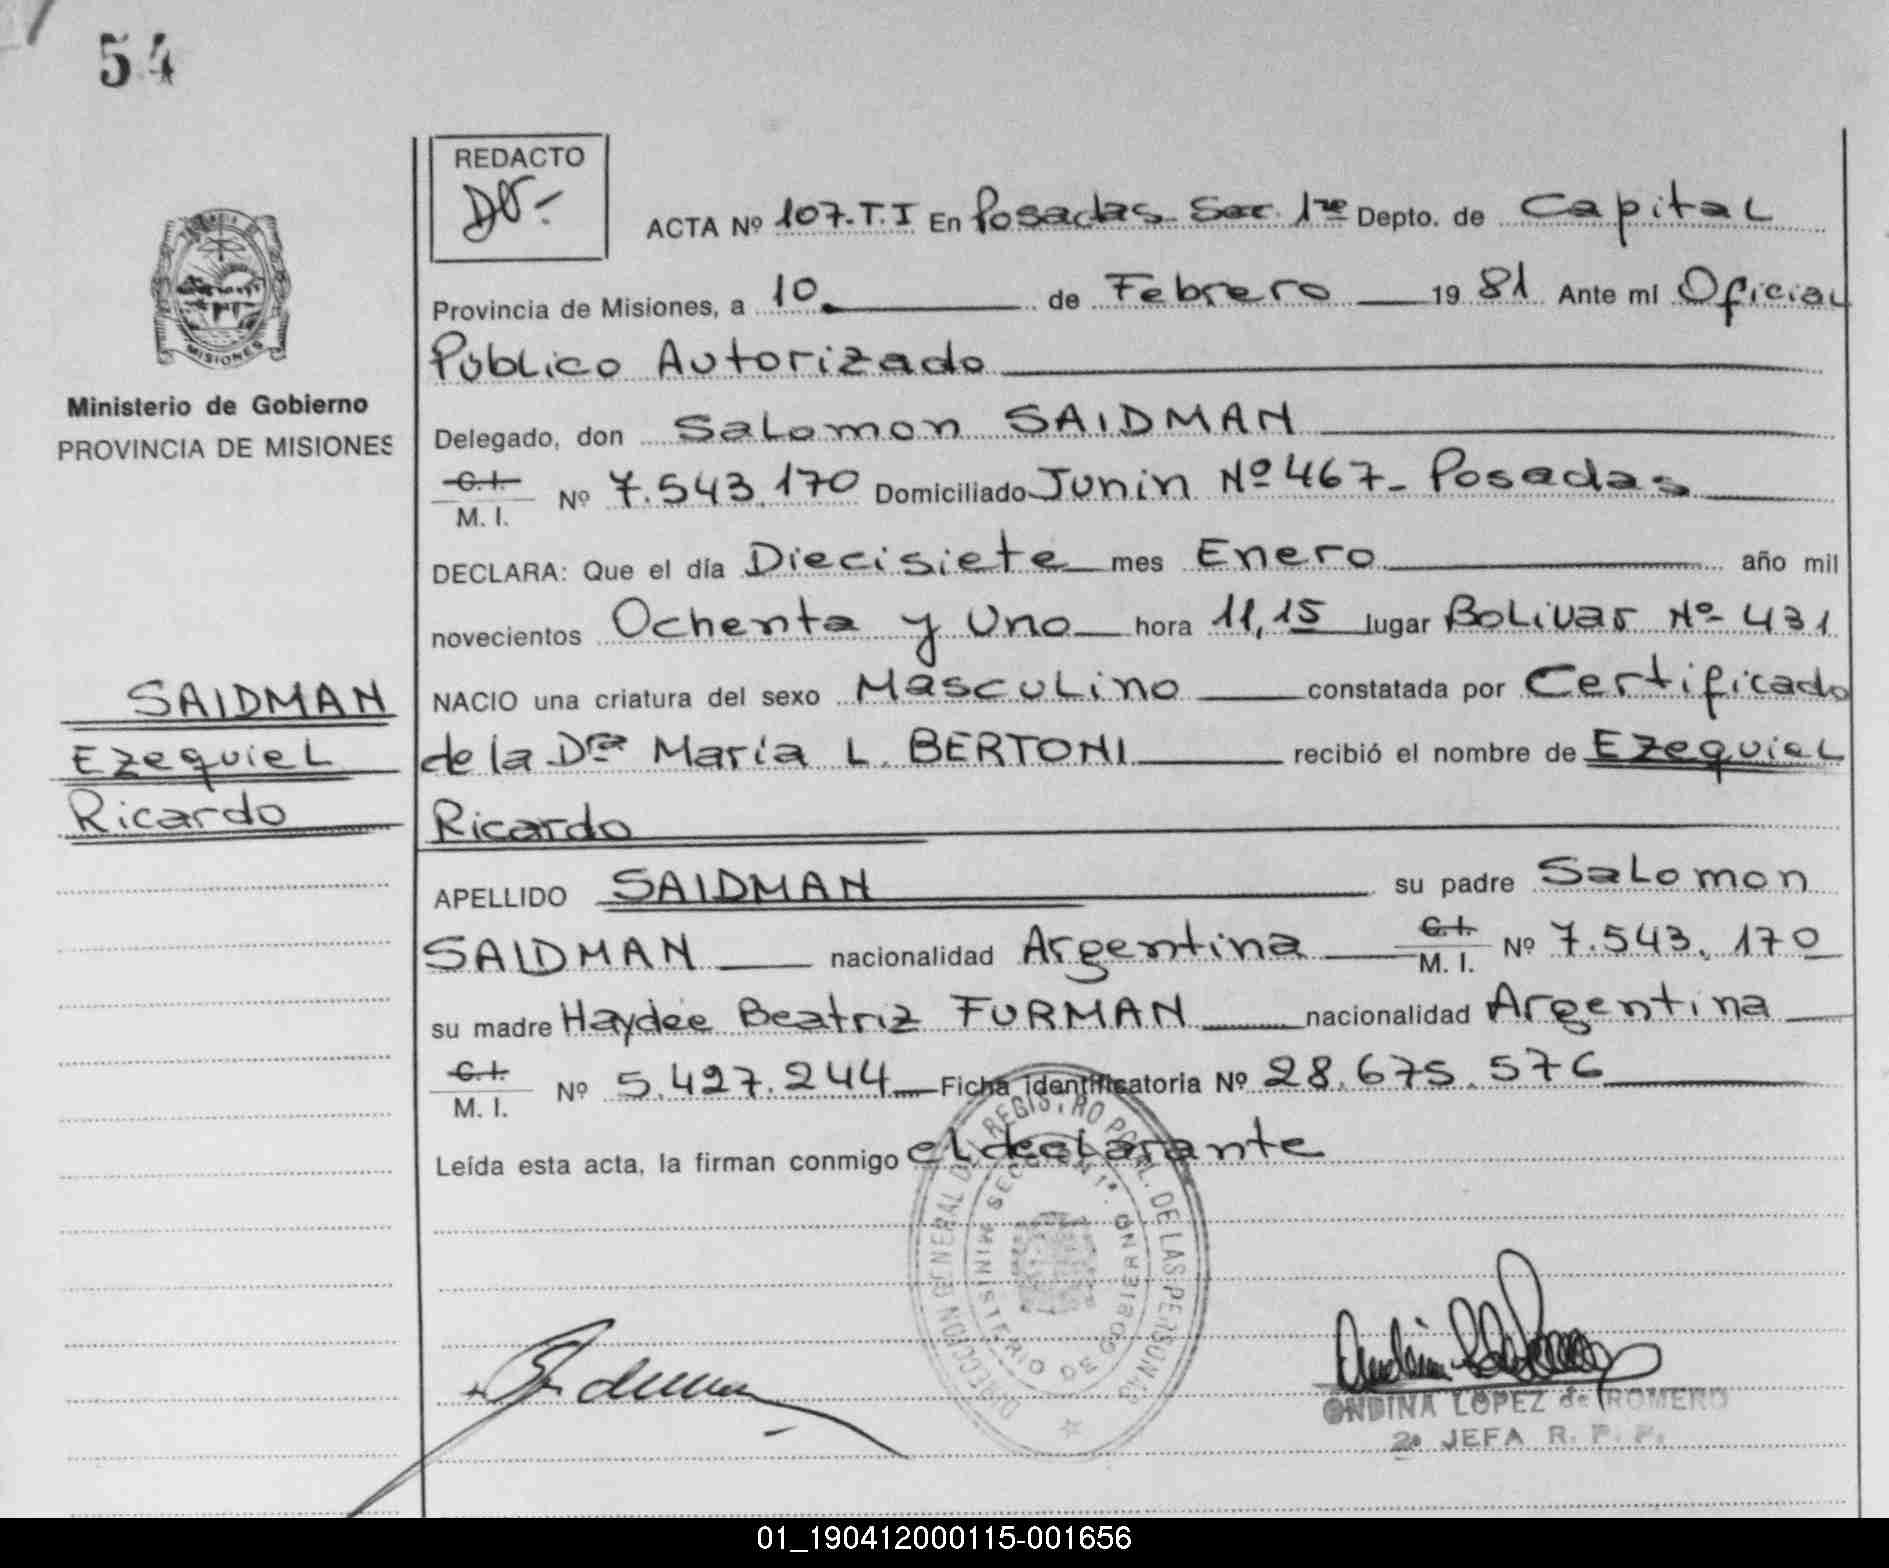 54
REDACTO
ACTA Nº 107.T.I En Posadas Sec. 1ra Depto. de Capital
MISIONES
Provincia de Misiones, a 10 de Febrero 1981 Ante mi Oficial
Publico Autorizado
Ministerio de Gobierno
PROVINCIA DE MISIONES
Delegado, don Salomon SAIDMAN
C.I.
M. I. Nº 7.543.170 Domiciliado Junin Nº 467- Posadas
DECLARA: Que el día Diecisiete mes Enero año mil
novecientos Ochenta y Uno hora 11,15 lugar Bolivar Nº 431
SAIDMAN
Ezequiel
Ricardo
NACIO una criatura del sexo Masculino constatada por Certificado
de la Dra María L. BERTONI recibió el nombre de Ezequiel
Ricardo
APELLIDO SAIDMAN su padre Salomon
SAIDMAN nacionalidad Argentina C.I. M. I. Nº 7.543.170
su madre Haydée Beatriz FURMAN nacionalidad Argentina
C.I.
M. I. Nº 5.427.244 Ficha identificatoria Nº 28.675.576
Leída esta acta, la firman conmigo el declarante
DIRECCION GENERAL DEL REGISTRO PCIAL. DE LAS PERSONAS
MINISTERIO DE GOBIERNO
SECCION 1ª
ONDINA LOPEZ de ROMERO
2ª JEFA R. P. P.
01_190412000115-001656